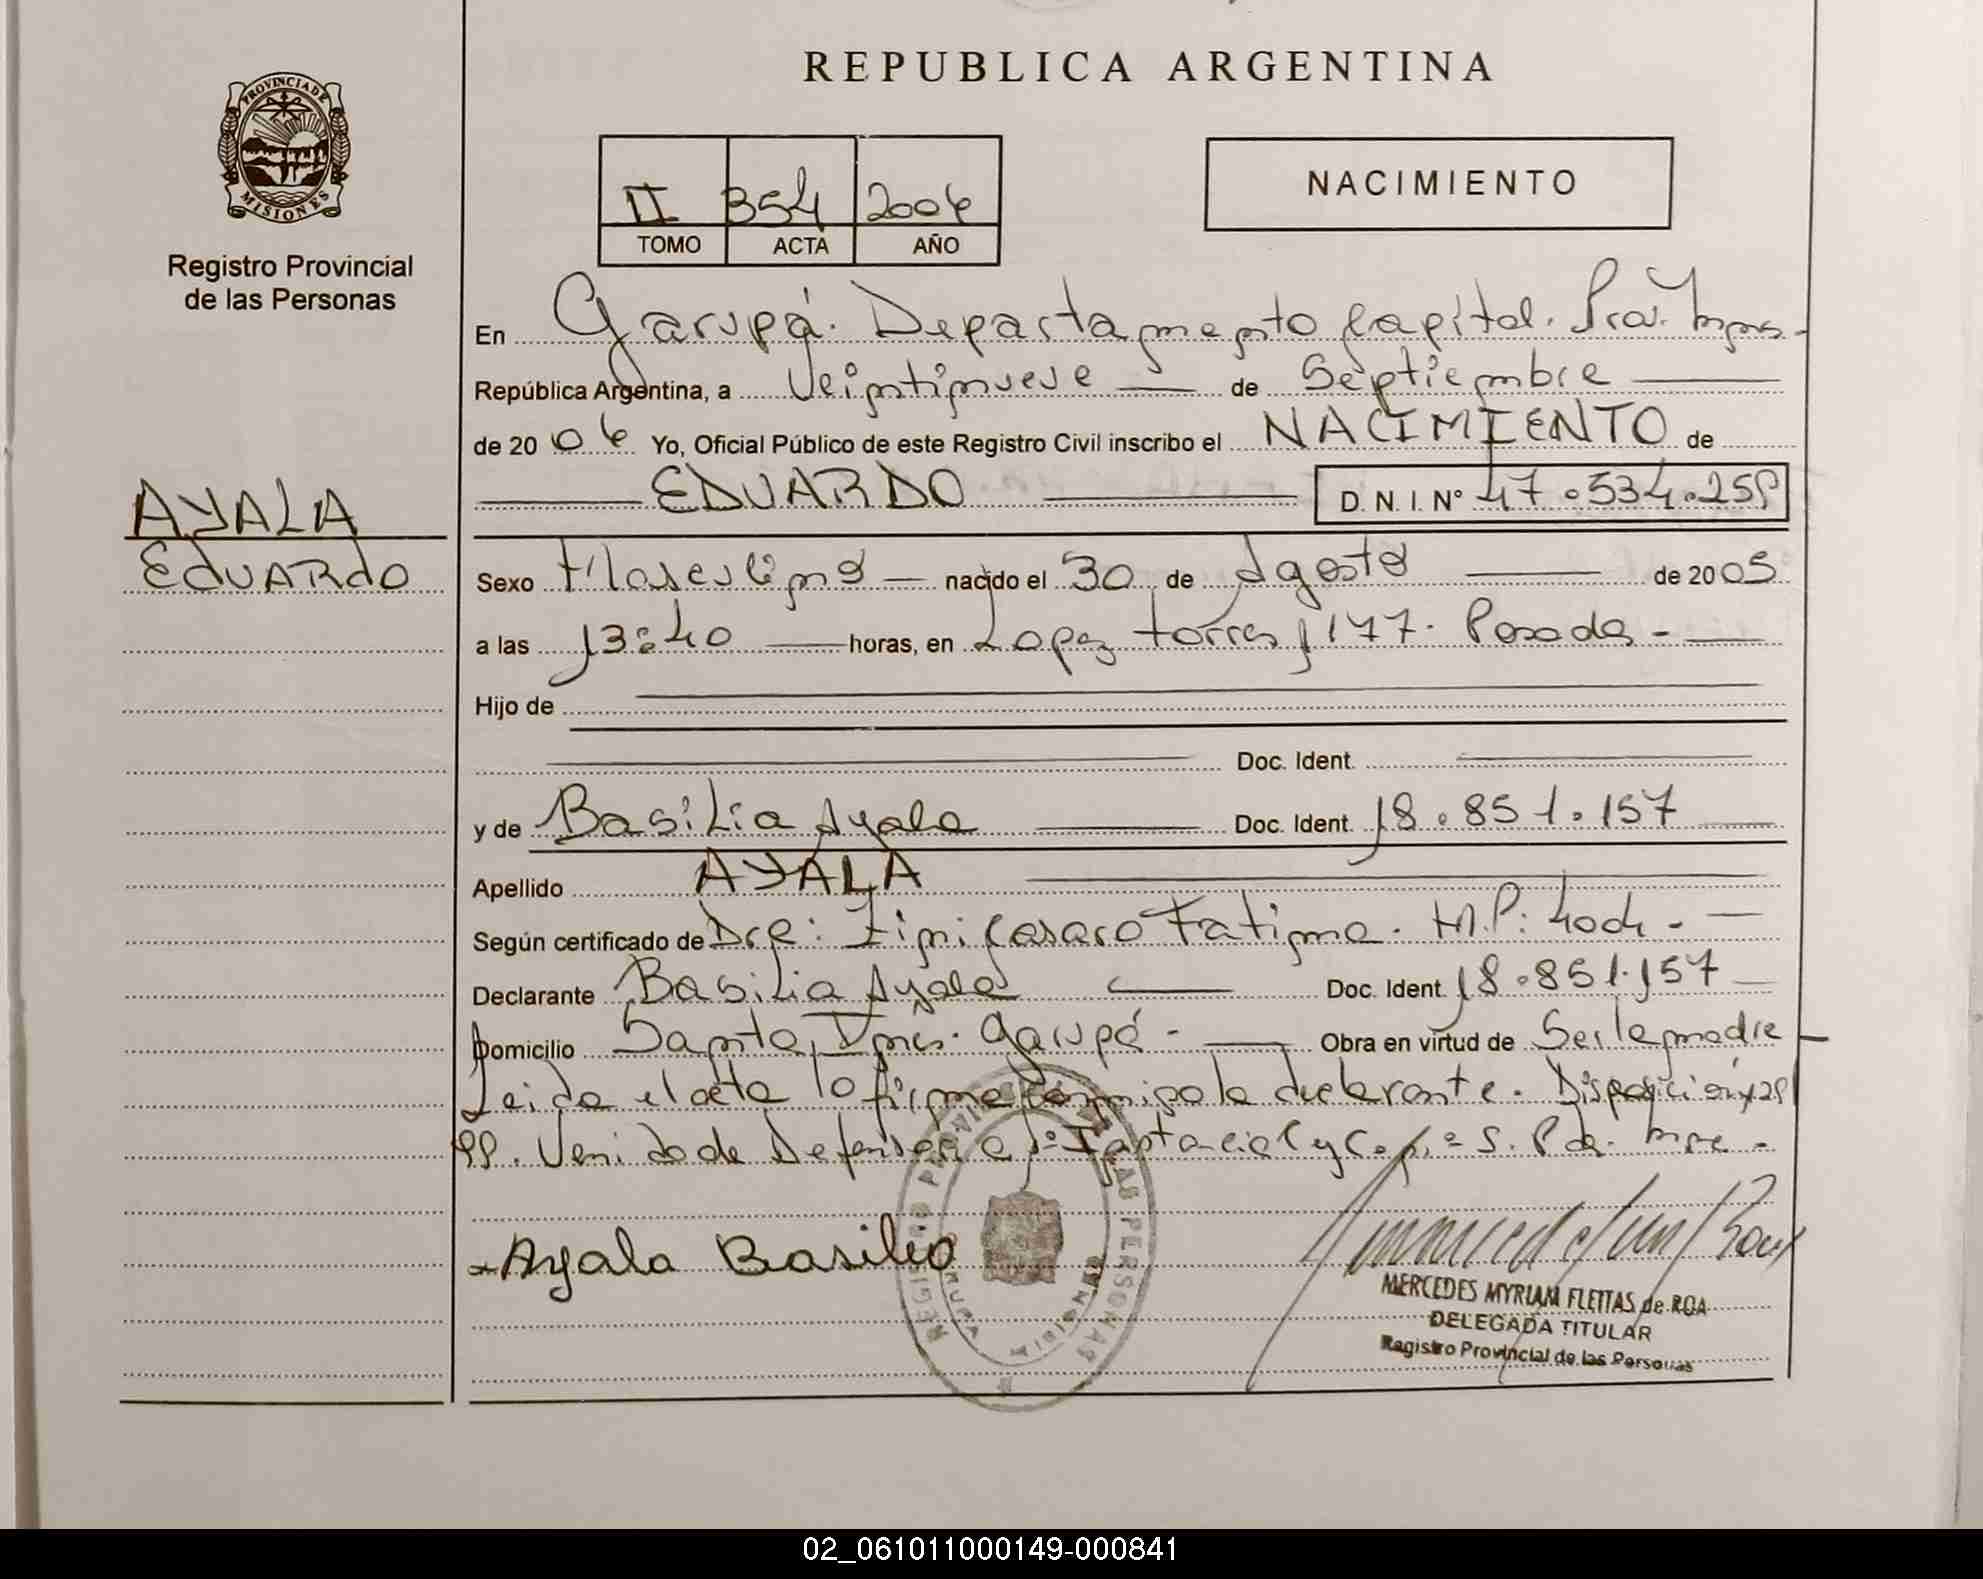 REPUBLICA ARGENTINA
PROVINCIA DE
MISIONES
Registro Provincial
de las Personas
II 354 2006
TOMO ACTA AÑO
NACIMIENTO
En Garupá. Departamento Capital. Mnes.-
República Argentina, a Veintinueve de Septiembre
de 20 06 Yo, Oficial Público de este Registro Civil inscribo el NACIMIENTO de
EDUARDO D. N. I. N° 47.534.259
AYALA
EDUARDO
Sexo Masculino nacido el 30 de Agosto de 20 05
a las 13:40 horas, en Lopez torres 1177. Posadas -
Hijo de
Doc. Ident.
y de Basilia Ayala Doc. Ident. 18.851.157
Apellido AYALA
Según certificado de Dra: Zini Casaro Fatima. M.P: 4004 -
Declarante Basilia Ayala Doc. Ident. 18.851.157
Domicilio Santa Ines. Garupá - Obra en virtud de Ser la madre
Leida el acta la firma conmigo la declarante. Disposición
Venido de Defensoria 1° Instancia C y C.
Ayala Basilia
MERCEDES MYRIAM FLEITAS de ROA
DELEGADA TITULAR
Registro Provincial de las Personas
REGISTRO PROVINCIAL DE LAS PERSONAS
GARUPA MISIONES
02_061011000149-000841